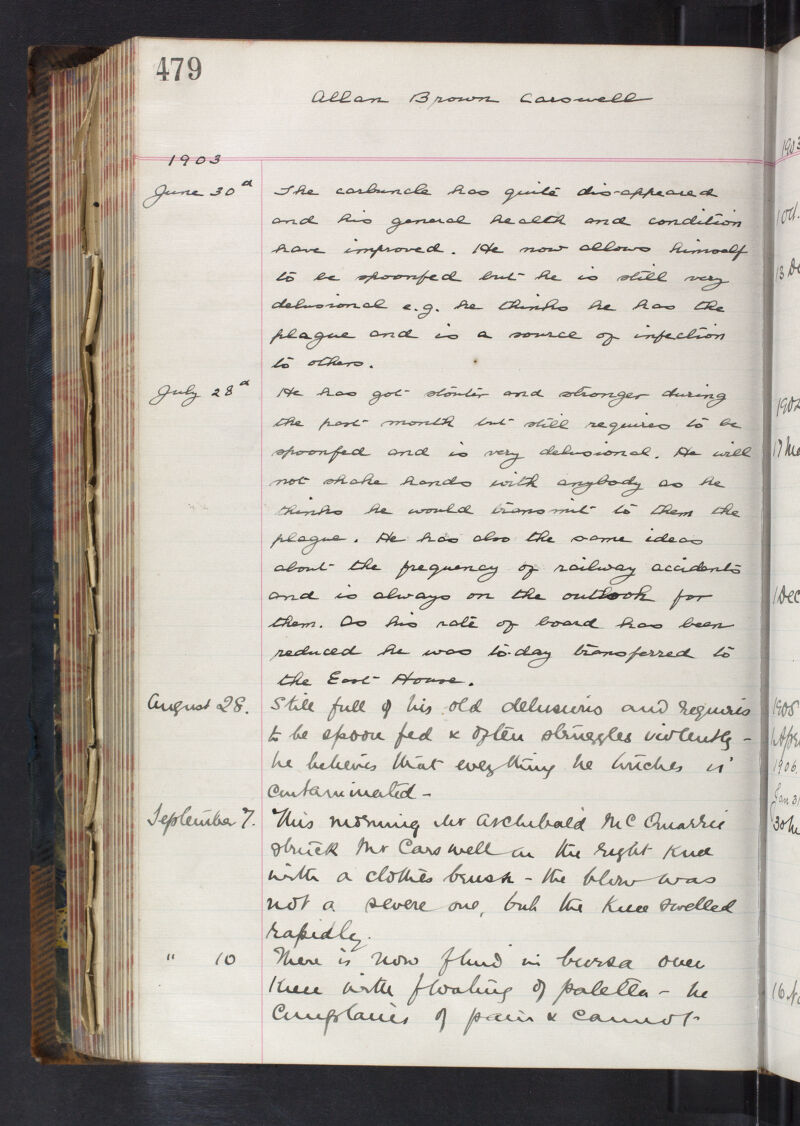 479
Allan Brown Carswell
1903
June 30th The carbuncle has quite dis-appeared
and his general health and condition
have improved. He now allows himself
to be spoonfed but he is still very
delusional e.g. he thinks he has the
plague and is a source of infection
to others.
July 28th He has got stouter and stronger during
the past month but still requires to be
spoonfed and is very delusional. He will
not shake hands with anybody as he
thinks he would transmit to them the
plague. He has also the same ideas
about the frequency of railway accidents
and is always on the outlook for
them. As his rate of board has been
reduced he was to-day transferred to
the East House.
August 28. Still full of his old delusions and requires
to be spoon fed & often struggles violently -
he believes that everything he touches is
contaminated -
September 7. This morning Mr Archibald
struck Mr Carswell on the right knee
with a clothes brush - the blow was
not a severe one, but the knee swelled
rapidly.
" 10 There is now fluid in bursa over
knee with floating of patella - he
complains of pain & cannot
1903
1 Oct.
1902
1 Dec
1905
1906.